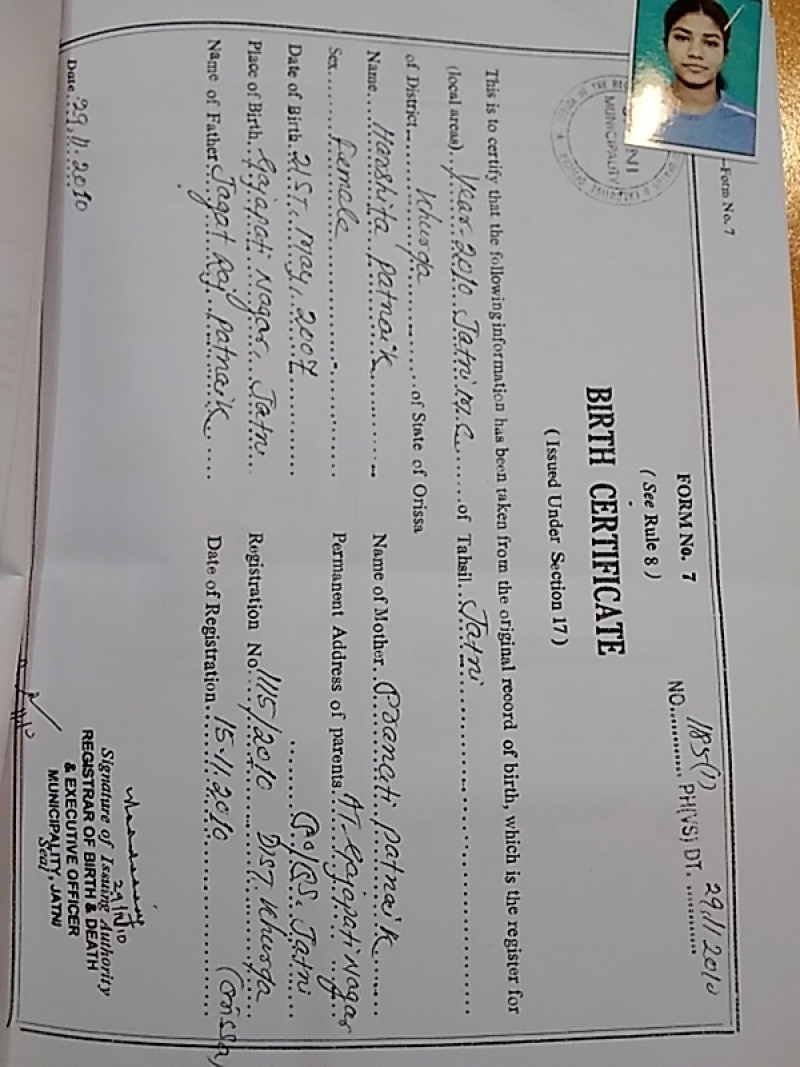 Form No. 7
FORM No. 7
(See Rule 8)
NO. 1185(1) PH(VS) DT. 29.11.2010
BIRTH CERTIFICATE
(Issued Under Section 17)
MUNICIPALITY
This is to certify that the following information has been taken from the original record of birth, which is the register for
(local areas) Year 2010 Jatni M.C. of Tahsil Jatni
of District Khurda of State of Orissa
Name Harshita Patnaik
Sex Female
Date of Birth 21ST. May, 2007
Place of Birth Gajapati Nagar, Jatni
Name of Father Jagat Raj Patnaik
Name of Mother Pranati Patnaik
Permanent Address of parents AT-Gajapati Nagar
Jatni
Registration No 1115/2010 DIST. Khurda
(Orissa)
Date of Registration 15.11.2010
Date 29.11.2010
29/11/10
Signature of Issuing Authority
REGISTRAR OF BIRTH & DEATH
& EXECUTIVE OFFICER
MUNICIPALITY, JATNI
Seal